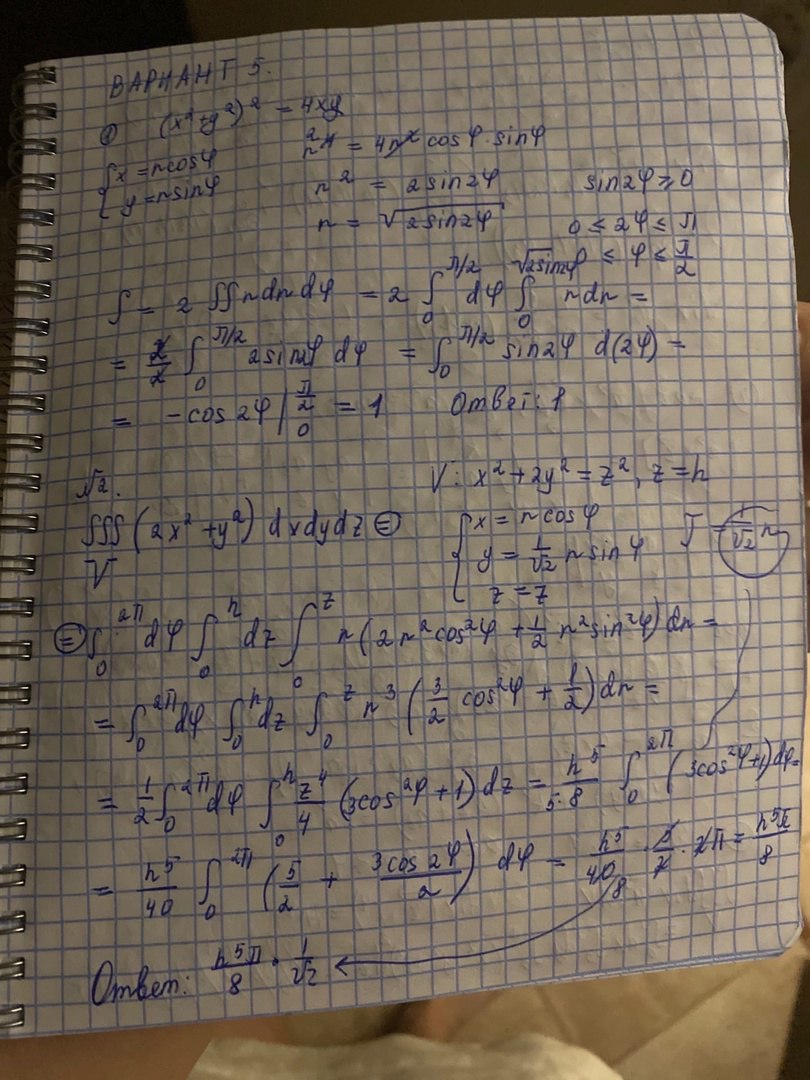 ВАРИАНТ 5.
① (x²+y²)² = 4xy
{ x = r cosφ
y = r sinφ
r⁴ = 4r² cosφ · sinφ
r² = 2 sin2φ sin2φ ≥ 0
r = √(2 sin2φ) 0 ≤ 2φ ≤ π
0 ≤ φ ≤ π/2
S = 2 ∬ r dr dφ = 2 ∫₀^{π/2} dφ ∫₀^{√(2sin2φ)} r dr =
= 2/2 ∫₀^{π/2} 2 sin2φ dφ = ∫₀^{π/2} sin2φ d(2φ) =
= -cos2φ |₀^{π/2} = 1 Ответ: 1
√2. V: x² + 2y² = z², z = h
∭_V (2x² + y²) dxdydz ⊜
{ x = r cosφ
y = 1/√2 r sinφ
z = z
J = 1/√2 r
⊜ ∫₀^{2π} dφ ∫₀^h dz ∫₀^z r (2r² cos²φ + 1/2 r² sin²φ) dr =
= ∫₀^{2π} dφ ∫₀^h dz ∫₀^z r³ (3/2 cos²φ + 1/2) dr =
= 1/2 ∫₀^{2π} dφ ∫₀^h z⁴/4 (3cos²φ + 1) dz = h⁵/5·8 ∫₀^{2π} (3cos²φ + 1) dφ =
= h⁵/40 ∫₀^{2π} (5/2 + 3cos2φ/2) dφ = h⁵/40 8 · 5/2 · 2π = h⁵π/8
Ответ: h⁵π/8 · 1/√2